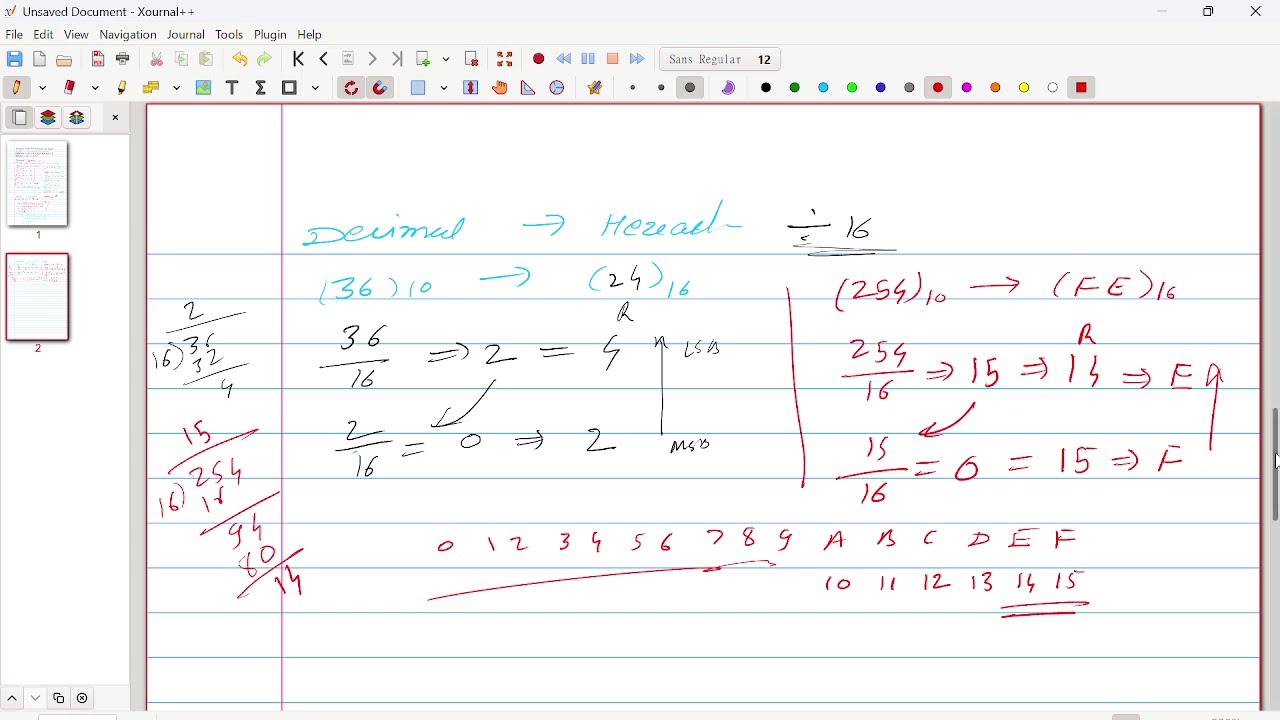 Unsaved Document - Xournal++
File Edit View Navigation Journal Tools Plugin Help
Sans Regular 12
1
2
Decimal → Hexad ÷ 16
(36)10 → (24)16
(254)10 → (FE)16
R
36/16 ⇒ 2 = 4 LSB
2/16 = 0 ⇒ 2 MSB
R
254/16 ⇒ 15 ⇒ 14 ⇒ E
15/16 = 0 = 15 ⇒ F
2
16) 36
32
4
15
16) 254
16
94
80
14
0 1 2 3 4 5 6 7 8 9 A B C D E F
10 11 12 13 14 15